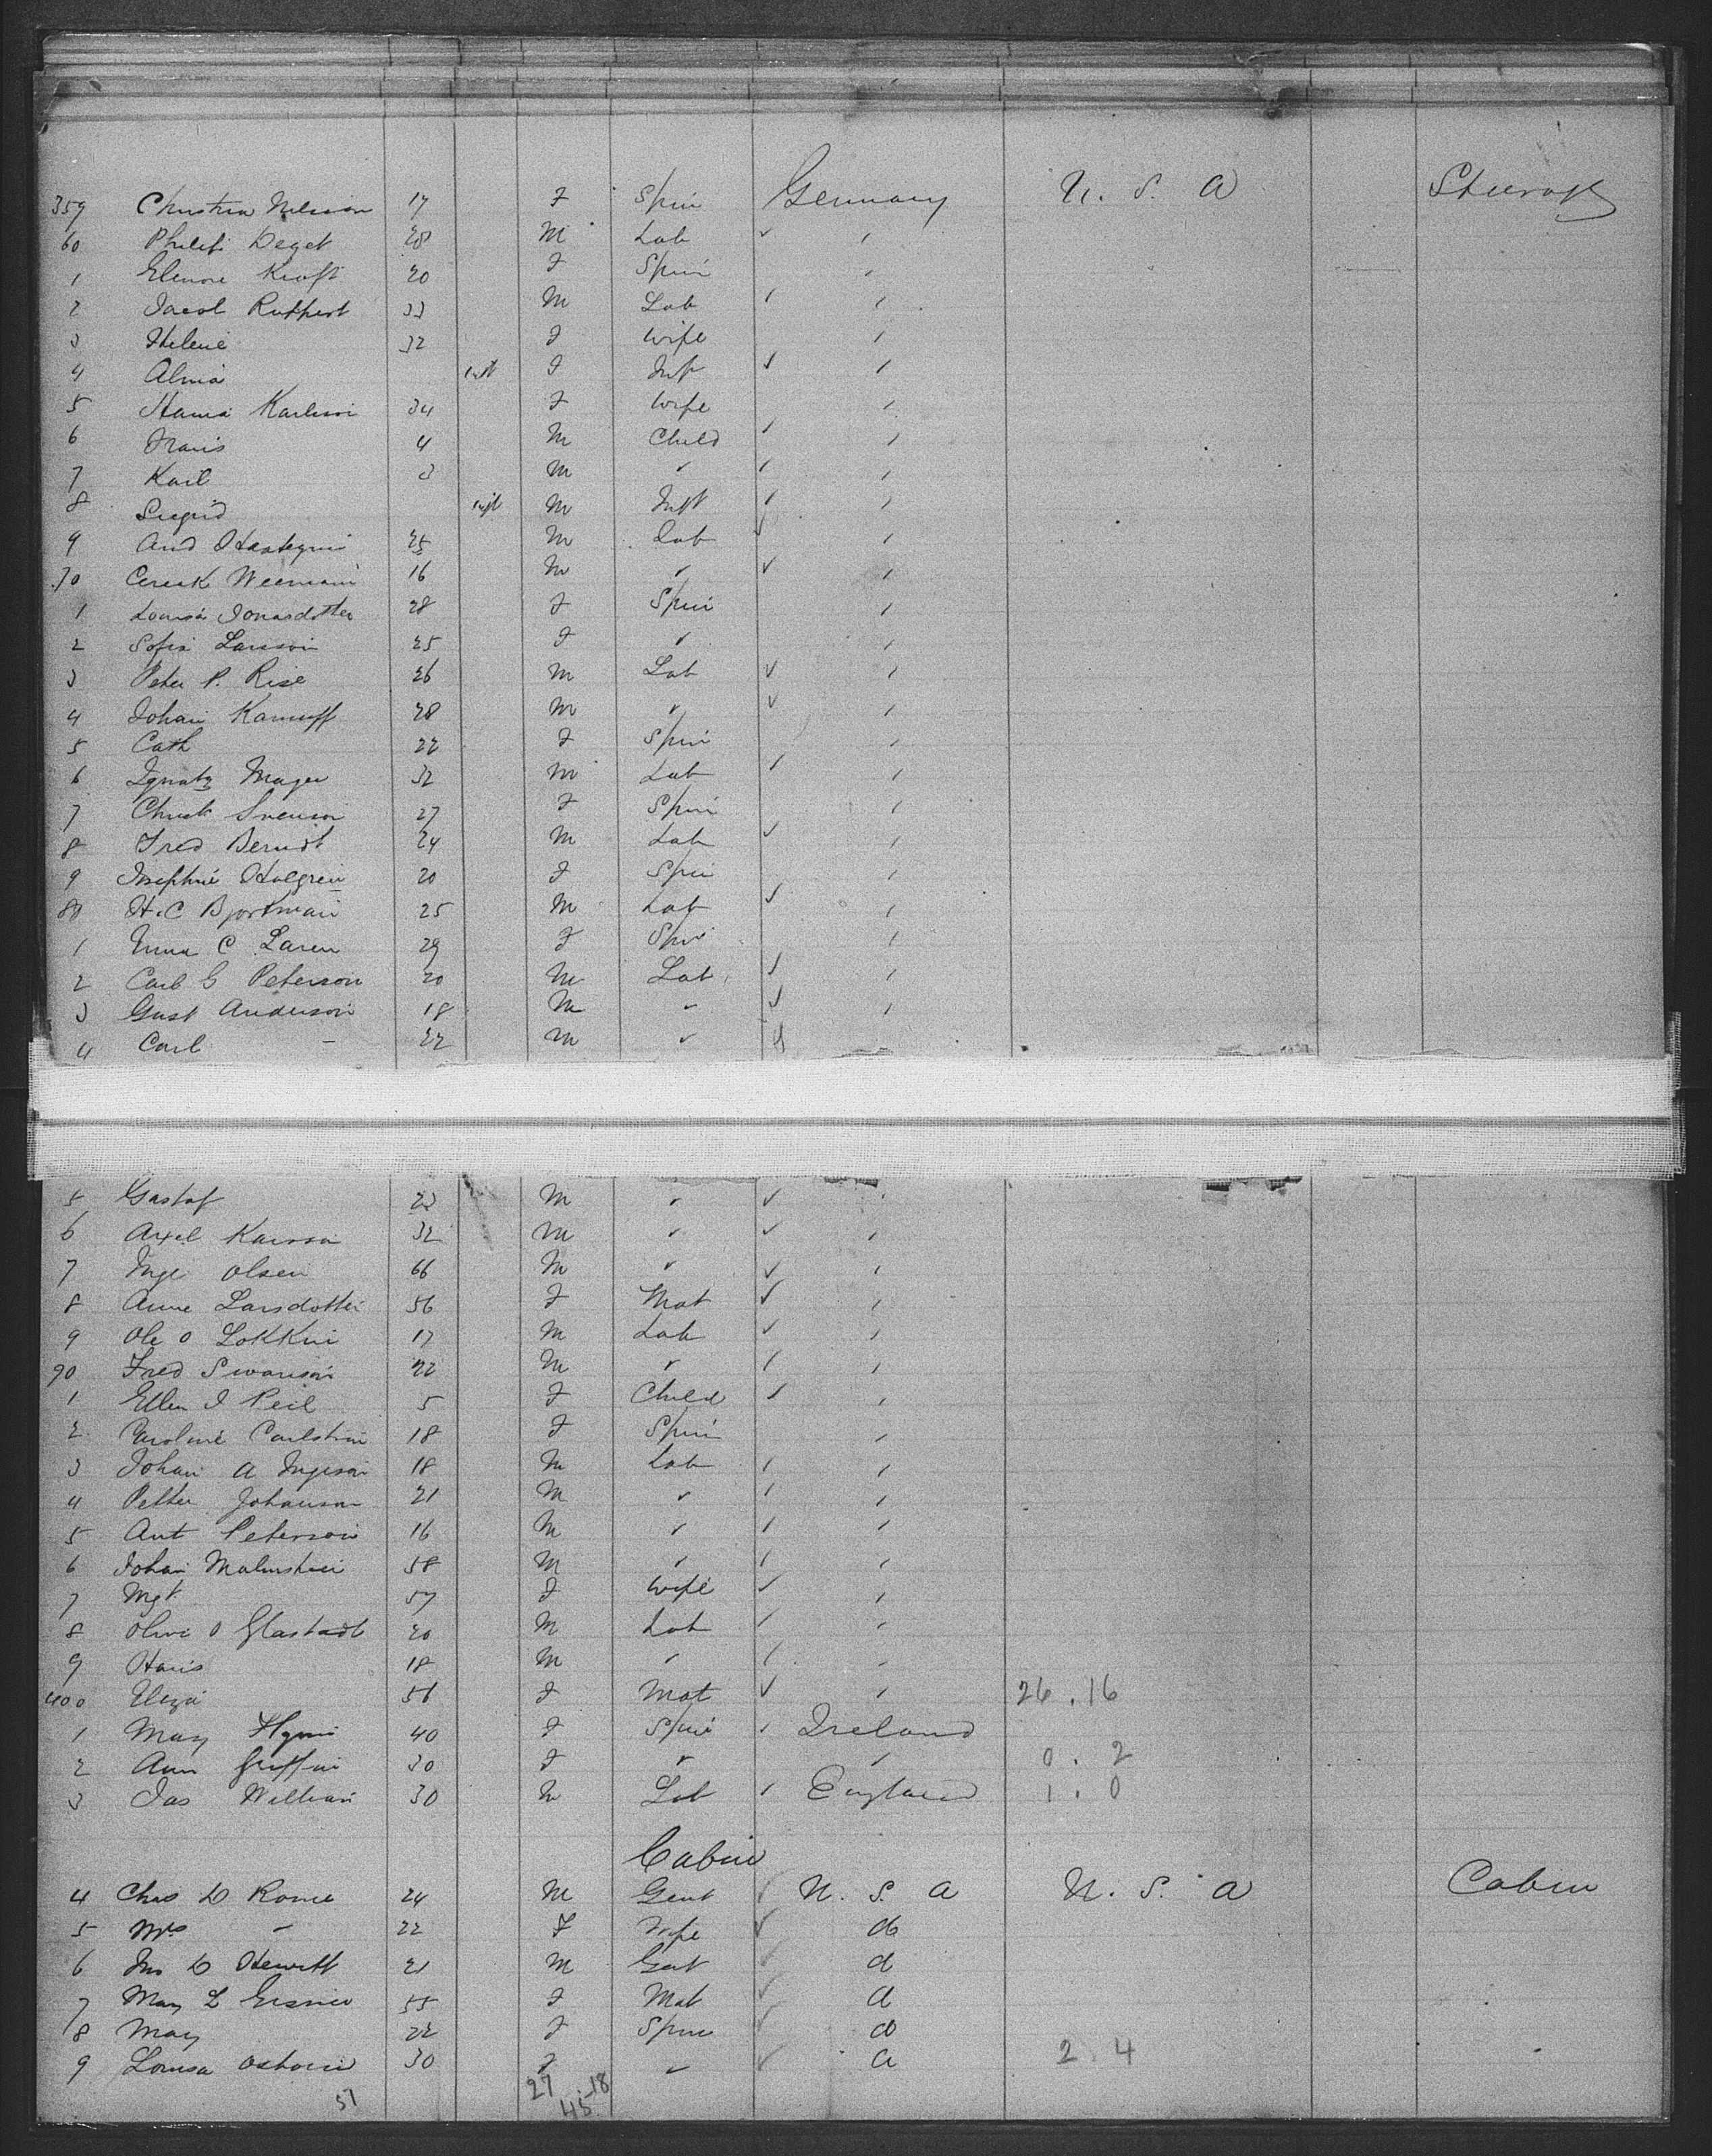 359 Christina Nelson 17 F Spin Germany U. S. A Steerage
60 Philip Deget 28 M Lab ✓ '
1 Elenore Kraft 20 F Spin '
2 Jacob Ruppert 33 M Lab ' '
3 Helene 32 F Wife '
4 Alma Inft F Inf ✓ '
5 Karlson 34 F Wife '
6 Frans 4 M Child ' '
7 Karl 3 M ✓ ' '
8 Sigrid Inft M Inft ' '
9 And 25 M Lab ✓ '
70 16 M ✓ ✓ '
1 Lovisa Jonasdotter 28 F Spin '
2 Sofia Larsson 25 F ✓ '
3 Peter P. Rise 26 M Lab ✓ '
4 Johan Kamuff 28 M ✓ ✓ '
5 Cath 22 F Spin '
6 Ignatz Mayer 32 M Lab ' '
7 Christ Svenson 27 F Spin '
8 Fred Berndt 24 M Lab ✓ '
9 Josephine Holgren 20 F Spin '
80 H. C Bjorkman 25 M Lab ✓ '
1 Emma C Laren 29 F Spin '
2 Carl G Peterson 20 M Lab ✓ '
3 Gust Anderson 18 M ✓ ✓ '
4 Carl - 22 M ✓
5 Gustaf 23 M ✓ ✓ '
6 Axel 32 M ✓ ✓ '
7 Inge Olsen 66 M ✓ ✓ '
8 Anne Larsdotter 56 F Mat ✓ '
9 Ole O Lokken 17 M Lab ✓ '
90 Fred Swanson 22 M ✓ ' '
1 Ellen J Peil 5 F Child ' '
2 Caroline Carlstrom 18 F Spin '
3 Johan A Ingeson 18 M Lab ' '
4 Petter Johanson 21 M ✓ ' '
5 Ant Peterson 16 M ✓ ' '
6 Johan Malmsten 58 M ' ' '
7 Mgt 57 F Wife ✓ '
8 O Glastadt 20 M Lab ' '
9 Hans 18 M ' ' '
400 Eliza 56 F Mat ✓ ' 26 . 16
1 Mary Flynn 40 F Spin ' Ireland
2 Ann Griffin 30 F ✓ ' 0 . 2
3 Jas William 30 M Lab ' England 1 . 0
Cabin
4 Chas D Rome 24 M Gent ✓ U. S. A U. S. A Cabin
5 Mrs - 22 F Wife ✓ do
6 Jno D Hewitt 21 M Gent ✓ d
7 Mary L 55 F Mat ✓ d
8 Mary 22 F Spin ✓ do
9 Louisa Osborne 30 F ✓ ✓ d 2 . 4
51 27 18
45